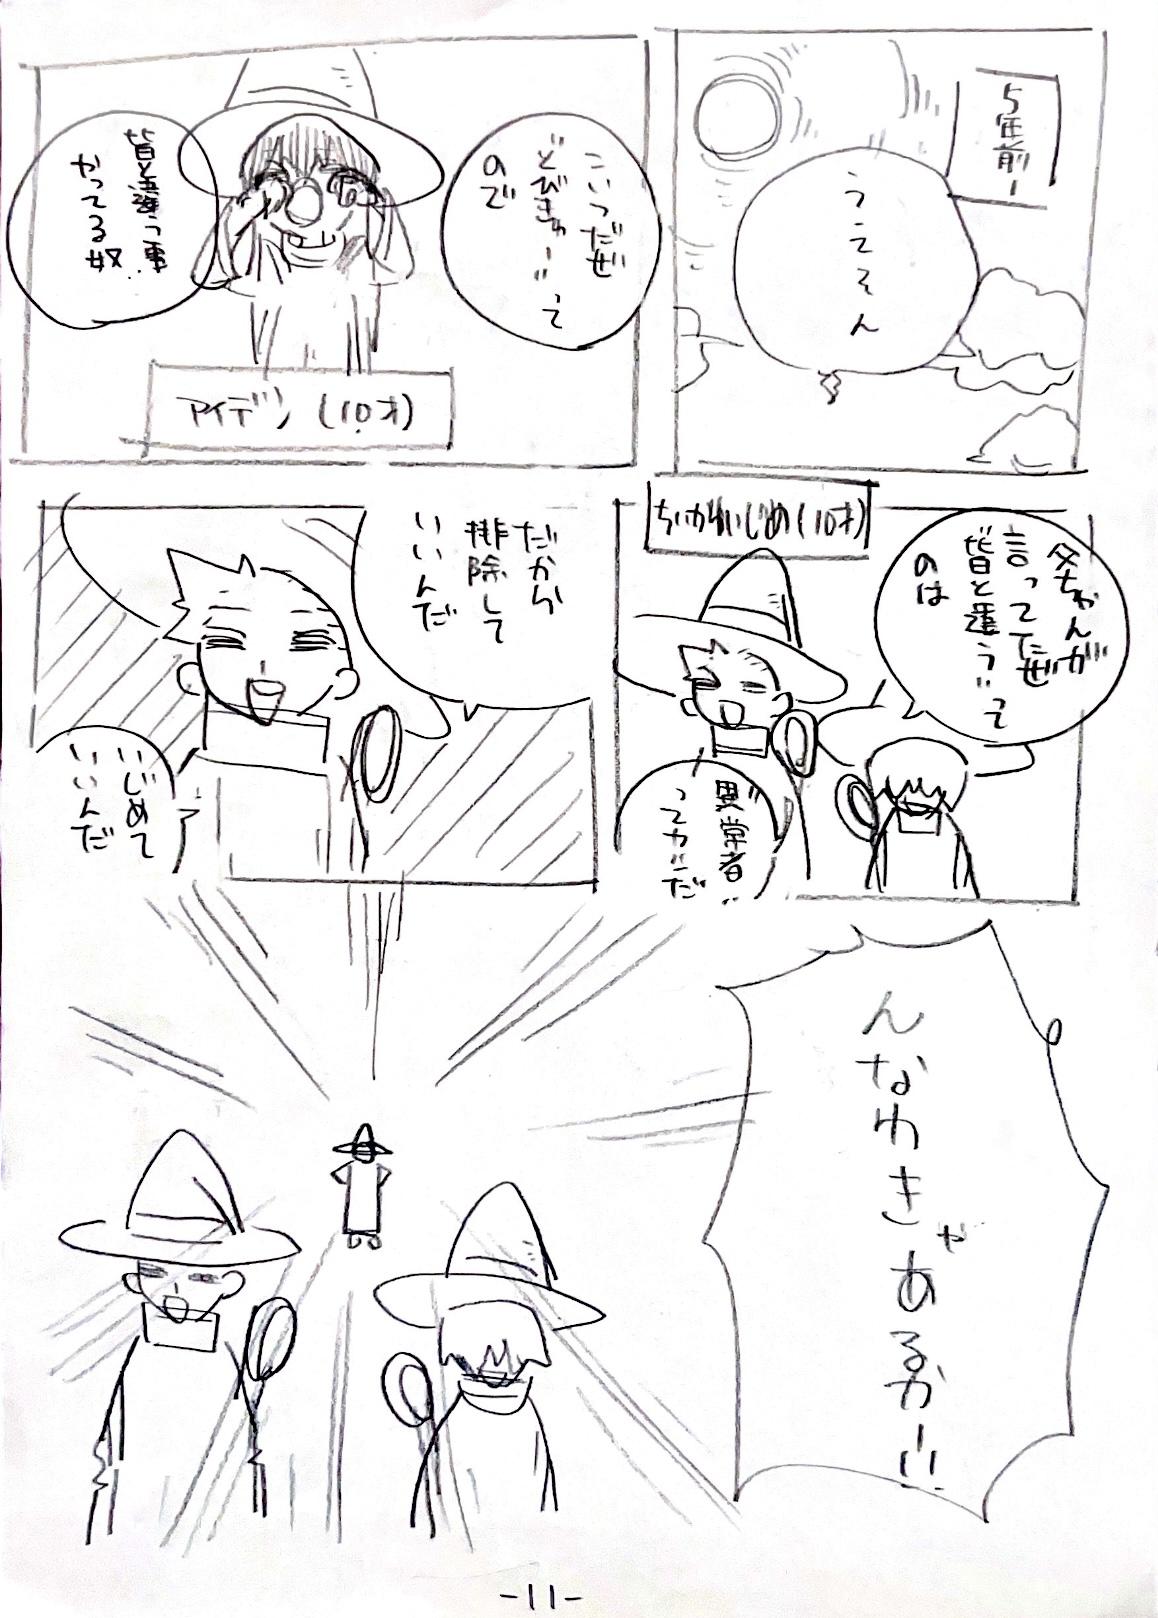 5年前ー
うてそん
こいつだぜ
どびきゅーって
ので
皆と違う事
やってる奴
アイデン(10才)
ちいかわいじめ(10才)
父ちゃんが
言ってたぜ
皆と違うって
のは
異常者
ってカだ
だから
排除して
いいんだ
いじめて
いいんだ
んなわきゃあるか!!
-11-